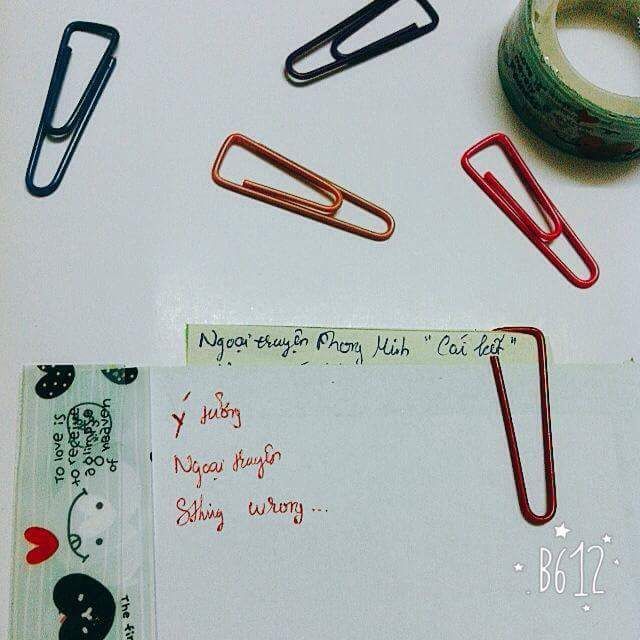 Ngoại truyện Phong Minh "Cái kết"
Ý tưởng
Ngoại truyện
Sthing wrong...
To love is
to receive
a glimpse
of heaven
The fir
B612